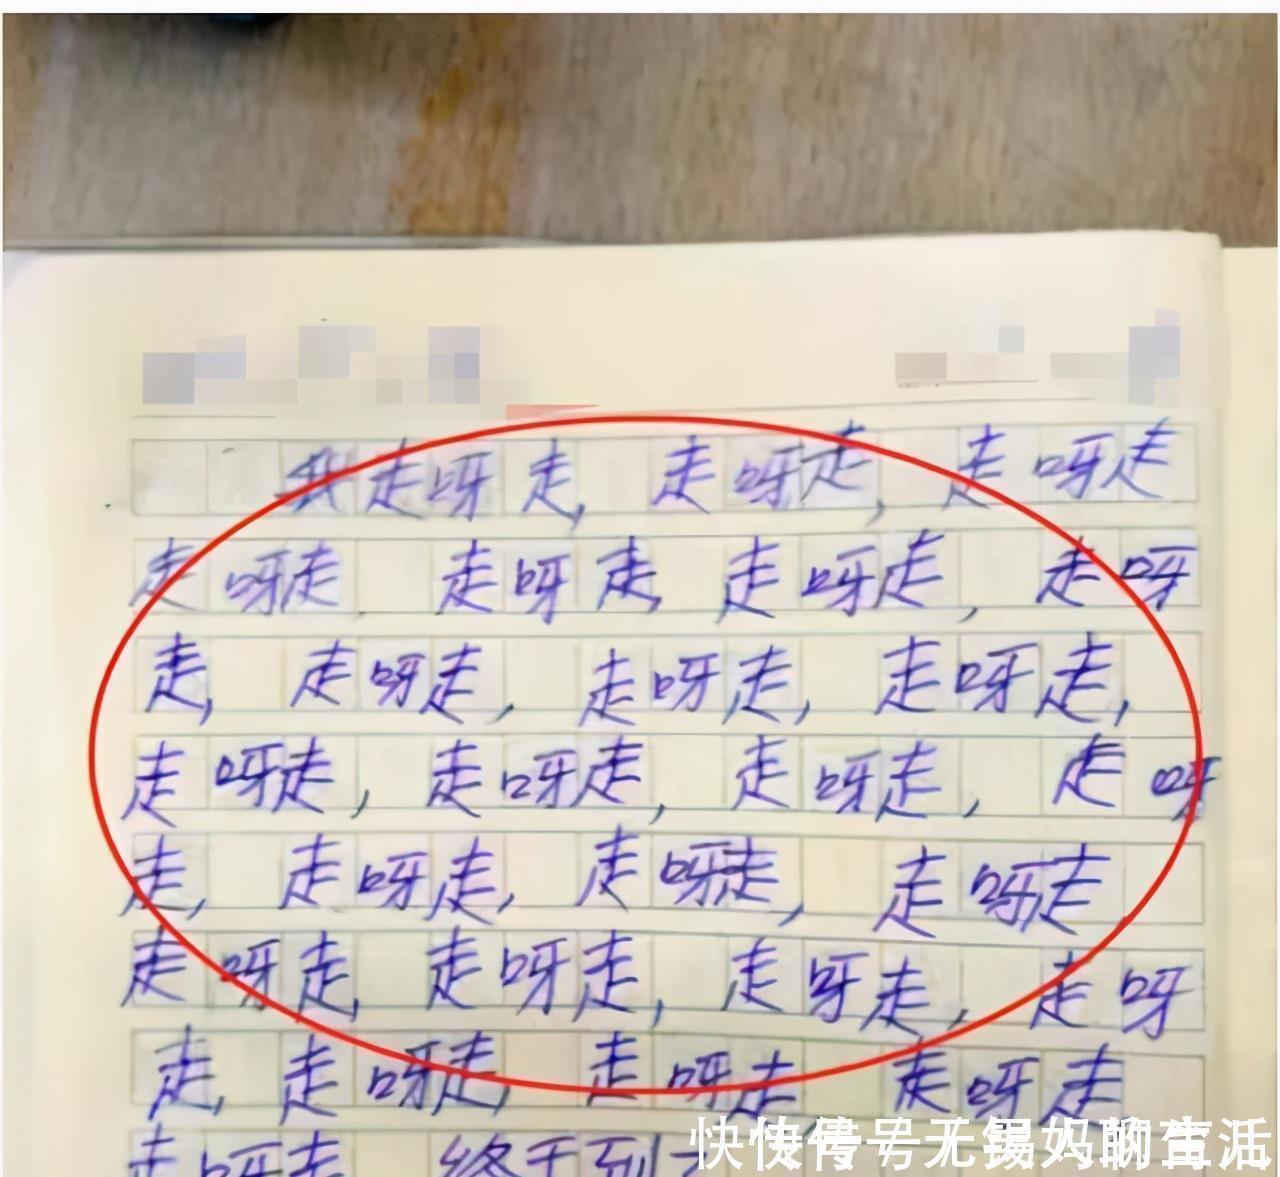 我走呀走,走呀走,走呀走
走呀走,走呀走,走呀走,走呀
走,走呀走,走呀走,走呀走,
走呀走,走呀走,走呀走,走呀
走,走呀走,走呀走,走呀走
走呀走,走呀走,走呀走,走呀
走,走呀走,走呀走,走呀走
走呀走 终于到
快传号 无锡妈聊生活